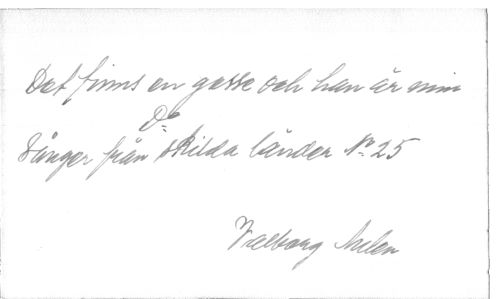 Det finns en gosse och han är min
Do
Sånger från skilda länder No 25
Valborg